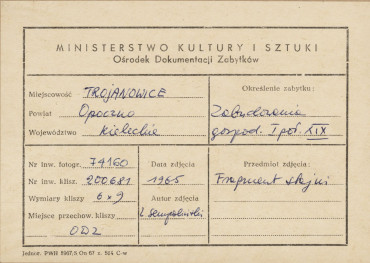 MINISTERSTWO KULTURY I SZTUKI
Ośrodek Dokumentacji Zabytków
Miejscowość TROJANOWICE
Powiat Opoczno
Województwo kieleckie
Określenie zabytku:
Zabudowania
gospod. I poł. XIX
Nr inw. fotogr. 74160
Nr inw. klisz. 200681
Wymiary kliszy 6x9
Miejsce przechow. kliszy
ODZ
Data zdjęcia
1965
Autor zdjęcia
Przedmiot zdjęcia:
Fragment stajni
Jednor. PWH 8967/S On 67 z. 564 C-w